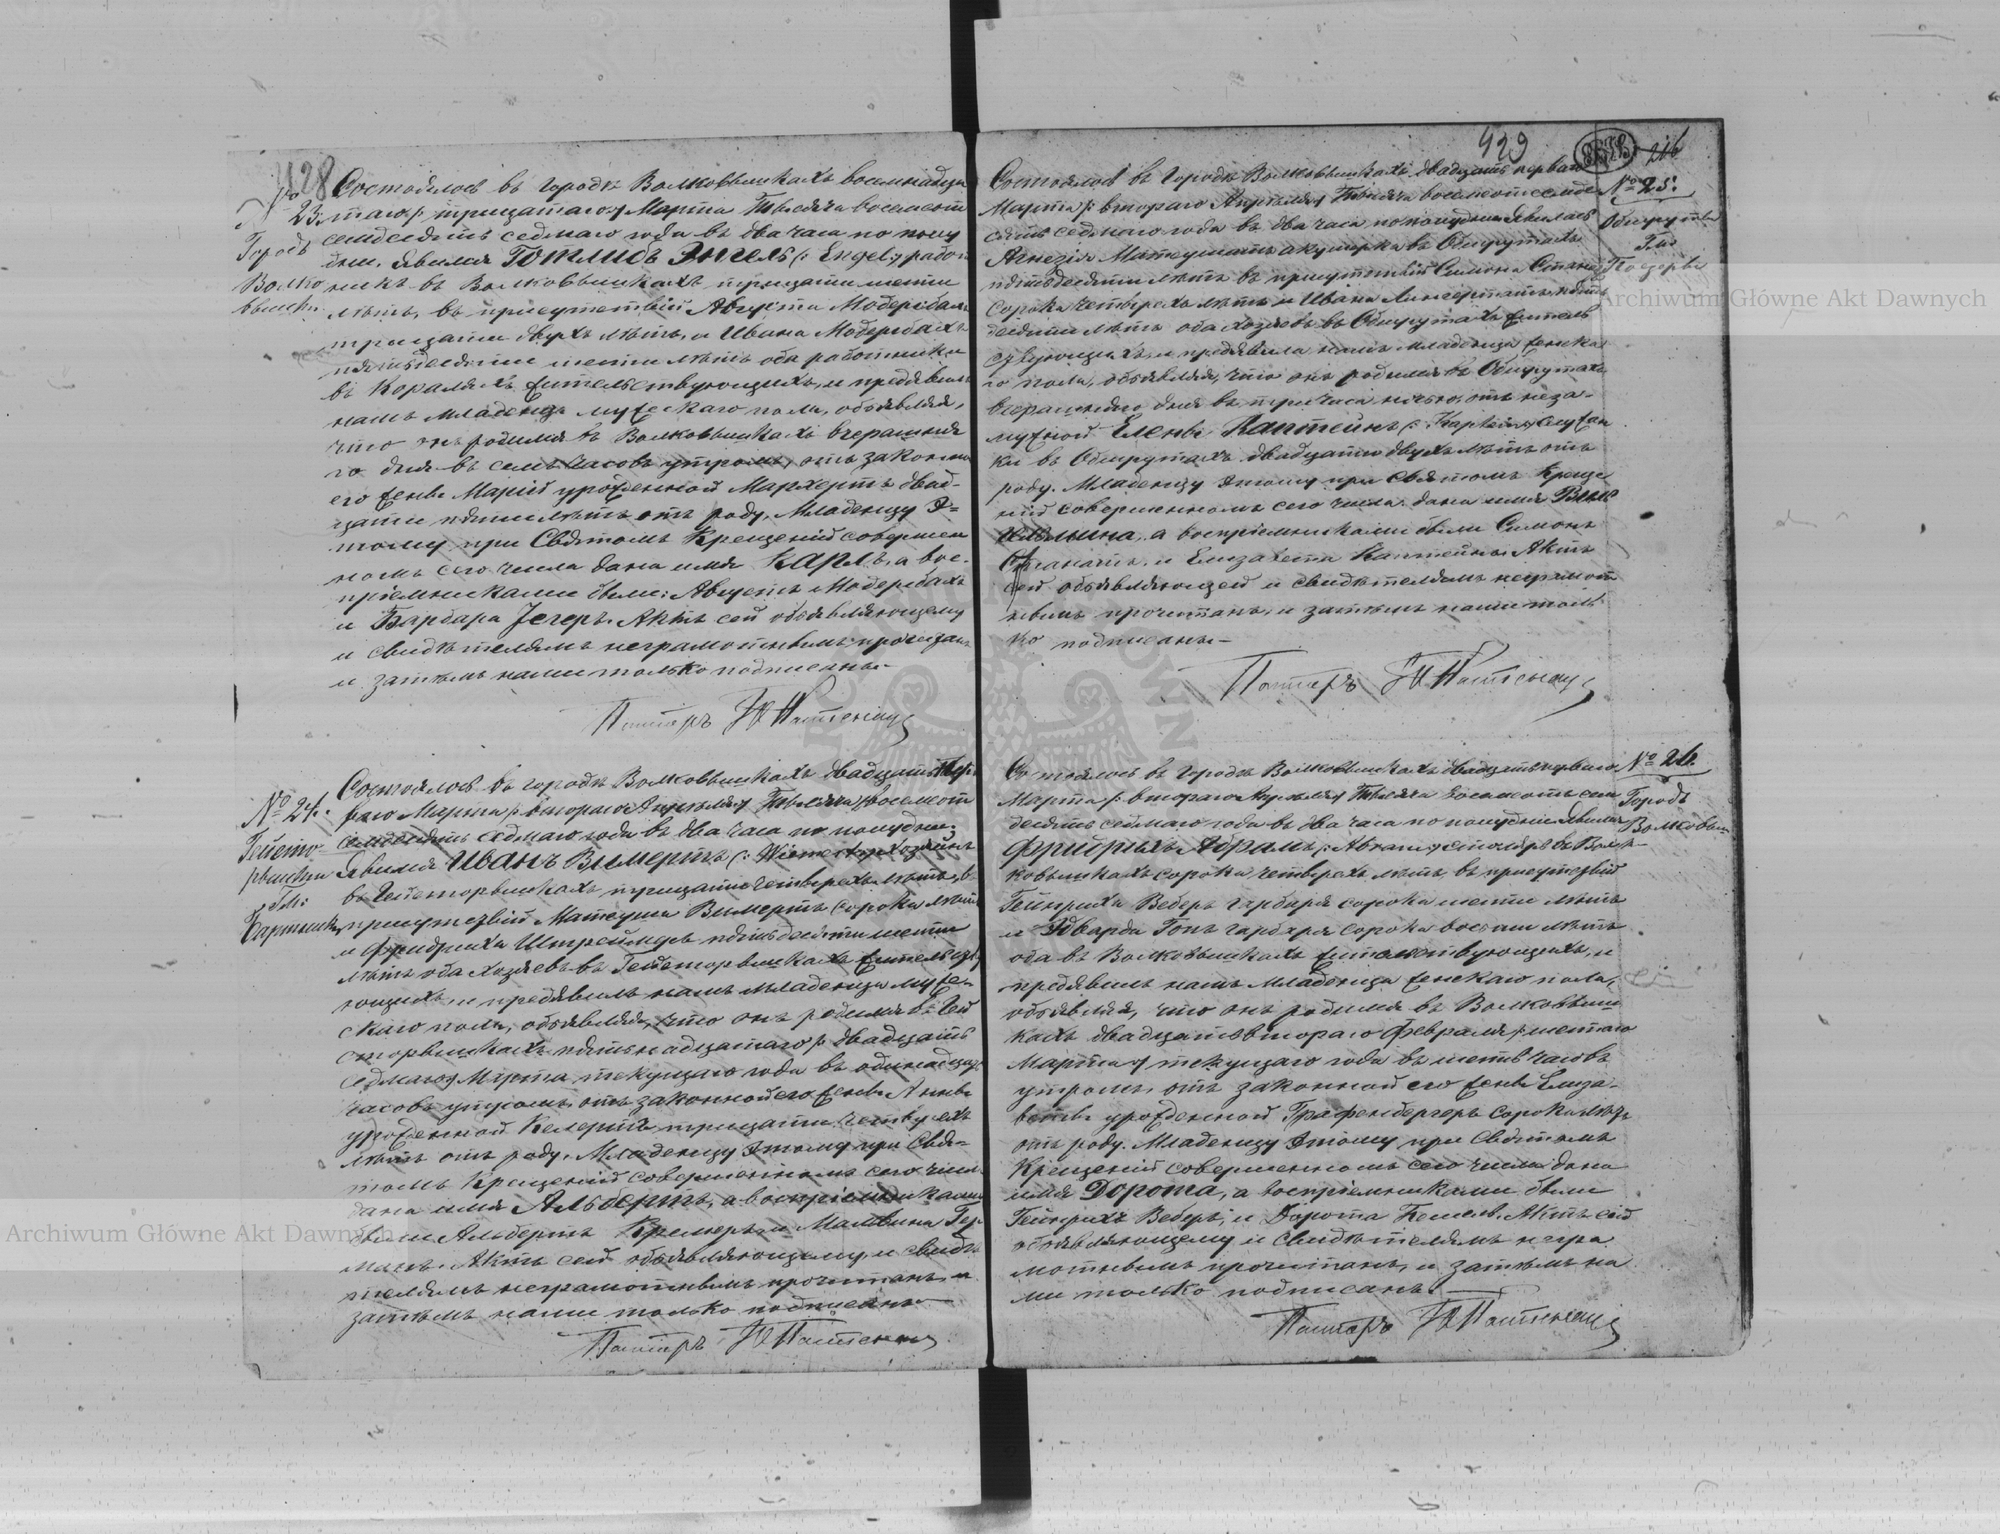 428
№ 23.
Городъ
Волко
вышки
Состоялось въ городѣ Волковышкахъ восемнадца
таго /: тридцатаго :/ Марта тысяча восемсотъ
семдесятъ седмаго года въ два часа по полу
дни. Явился Готлибъ Энгель (: Engel :) работ
никъ въ Волковышкахъ, тридцати шести
лѣтъ, въ присутствіи Августа Модербахъ
тридцати двухъ лѣтъ, и Ивана Модербахъ
пятьдесяти шести лѣтъ оба работники
въ жительствующихъ, и предъявилъ
намъ младенца мужескаго пола, объявляя,
что онъ родился въ Волковышкахъ вчерашня
го дня въ семь часовъ утромъ, отъ законной
его жены Маріи урожденной двад-
цати пяти лѣтъ отъ роду. Младенцу э-
тому при Святомъ Крещеніи совершен
номъ сего числа дано имя Карлъ, а вос-
пріемниками были: Августъ Модербахъ
и Барбара Jегеръ. Актъ сей объявляющему
и свидѣтелямъ неграмотнымъ прочитанъ
и затѣмъ нами только подписанъ.
Пасторъ
№ 24.
Гейсто
рвишки
Гм:
Бартники
Состоялось въ городѣ Волковышкахъ двадцать пер
ваго Марта /: втораго Апрѣля :/ тысяча восемсотъ
семдесятъ седмаго года въ два часа по полудни;
Явился Иванъ Вимертъ (: Wiemert :) хозяинъ
въ Гейсторвишкахъ, тридцати четырехъ лѣтъ, въ
присутствіи Матеуша Вимертъ сорока лѣтъ
и Фридриха пятьдесяти шести
лѣтъ оба хозяевъ въ Гейсторвишкахъ жительству
ющихъ, и предъявилъ намъ младенца муже-
скаго пола, объявляя, что онъ родился въ Гей
сторвишкахъ пятьнадцатаго /: двадцать
седмаго :/ Марта текущаго года въ одинадцать
часовъ утромъ, отъ законной его жены Анны
урожденной Келертъ тридцати четырехъ
лѣтъ отъ роду. Младенцу этому при Свя-
томъ Крещеніи совершенномъ сего числа
дано имя Альбертъ, а воспріемниками
были Альбертъ Кремеръ и Мальвина Гер
манъ. Актъ сей объявляющему и свидѣ
телямъ неграмотнымъ прочитанъ, и
затѣмъ нами только подписанъ.
Пасторъ
429
216
№ 25.
Обшруты
Гм:
Состоялось въ городѣ Волковышкахъ двадцать перваго
Марта /: втораго Апрѣля :/ тысяча восемсотъ семде
сятъ седмаго года въ два часа по полудни. Явилась
Агнезія акушерка въ Обшрутахъ
пятьдесяти лѣтъ въ присутствіи Симона
сорока четырехъ лѣтъ и Ивана пять
десяти лѣтъ оба хозяевъ въ Обшрутахъ житель
ствующихъ, и предъявила намъ младенца женска
го пола, объявляя, что онъ родился въ Обшрутахъ
вчерашняго дня въ три часа ночью, отъ неза-
мужной Елены Каптейнъ (: Kaptein :) служан
ки въ Обшрутахъ двадцати двухъ лѣтъ отъ
роду. Младенцу этому при Святомъ Креще
ніи совершенномъ сего числа дано имя Виль
гельмина, а воспріемниками были Симонъ
и Елизавета Каптейнъ. Актъ
сей объявляющей и свидѣтелямъ неграмот
нымъ прочитанъ, и затѣмъ нами толь
ко подписанъ.
Пасторъ
№ 26.
Городъ
Волковыш
Состоялось въ городѣ Волковышкахъ двадцать перваго
Марта /: втораго Апрѣля :/ тысяча восемсотъ сем
десятъ седмаго года въ два часа по полудни. Явился
Фридрихъ Абрамъ (: Abram :) столяръ въ Вол-
ковышкахъ сорока четырехъ лѣтъ, въ присутствіи
Гейнриха Веберъ гарбаря сорока шести лѣтъ
и Эдварда Гопъ гарбаря сорока восьми лѣтъ
оба въ Волковышкахъ жительствующихъ, и
предъявилъ намъ младенца женскаго пола,
объявляя, что онъ родился въ Волковыш
кахъ двадцать втораго Февраля /: шестаго
Марта :/ текущаго года въ шесть часовъ
утромъ, отъ законной его жены Елиза-
веты урожденной Графенбергеръ сорока лѣтъ
отъ роду. Младенцу этому при Святомъ
Крещеніи совершенномъ сего числа дано
имя Дорота, а воспріемниками были
Гейнрихъ Веберъ, и Дорота Актъ сей
объявляющему и свидѣтелямъ негра
мотнымъ прочитанъ, и затѣмъ на
ми только подписанъ.
Пасторъ
Archiwum Główne Akt Dawnych
Archiwum Główne Akt Dawnych